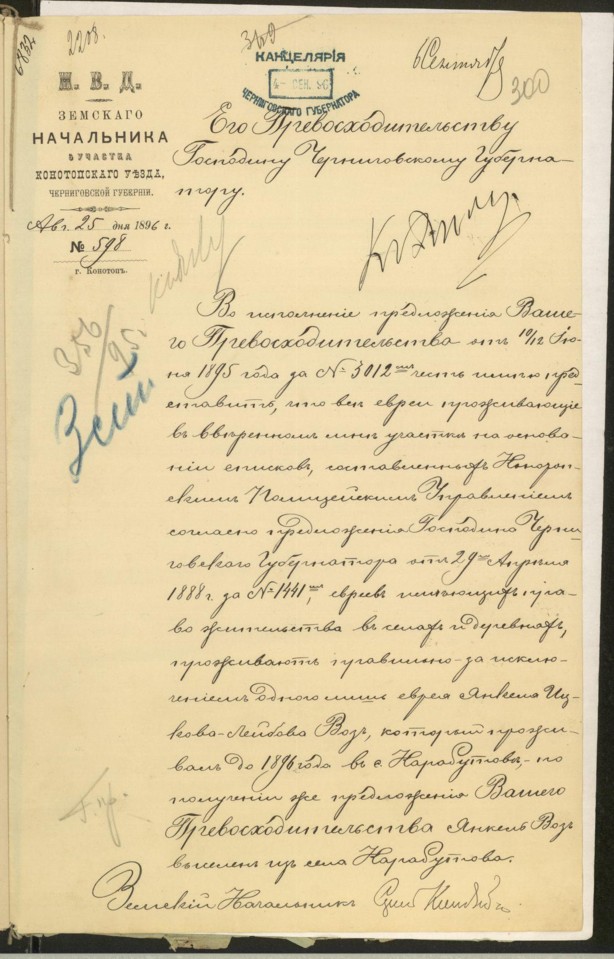 6832
2208.
М. В. Д.
ЗЕМСКАГО
НАЧАЛЬНИКА
5 УЧАСТКА
КОНОТОПСКАГО УѢЗДА,
ЧЕРНИГОВСКОЙ ГУБЕРНІИ.
Авг. 25 дня 1896 г.
№ 598
г. Конотопъ.
КАНЦЕЛЯРІЯ
СЕН. 96
ЧЕРНИГОВСКАГО ГУБЕРНАТОРА
6 Сентября
300
Его Превосходительству
Господину Черниговскому Губерна-
тору.
356/95
Во исполненіе предложенія Ваше-
го Превосходительства отъ 10/12 Ію-
ня 1895 года за № 3012 честь имѣю пред-
ставить, что всѣ евреи проживающіе
въ ввѣренномъ мнѣ участкѣ на основа-
ніи списковъ, составленныхъ Конотоп-
скимъ Полицейскимъ Управленіемъ
согласно предложенія Господина Черни-
говскаго Губернатора отъ 29 Апрѣля
1888 г. за № 1441, евреевъ имѣющихъ пра-
во жительства въ селахъ и деревняхъ,
проживаютъ правильно за исклю-
ченіемъ одного лишь еврея Янкеля Иц-
кова-Лейбова Возъ, который прожи-
валъ до 1896 года въ с. Карабутовѣ, но
полученіи же предложенія Вашего
Превосходительства Янкель Возъ
выселенъ изъ села Карабутова.
Земскій Начальникъ